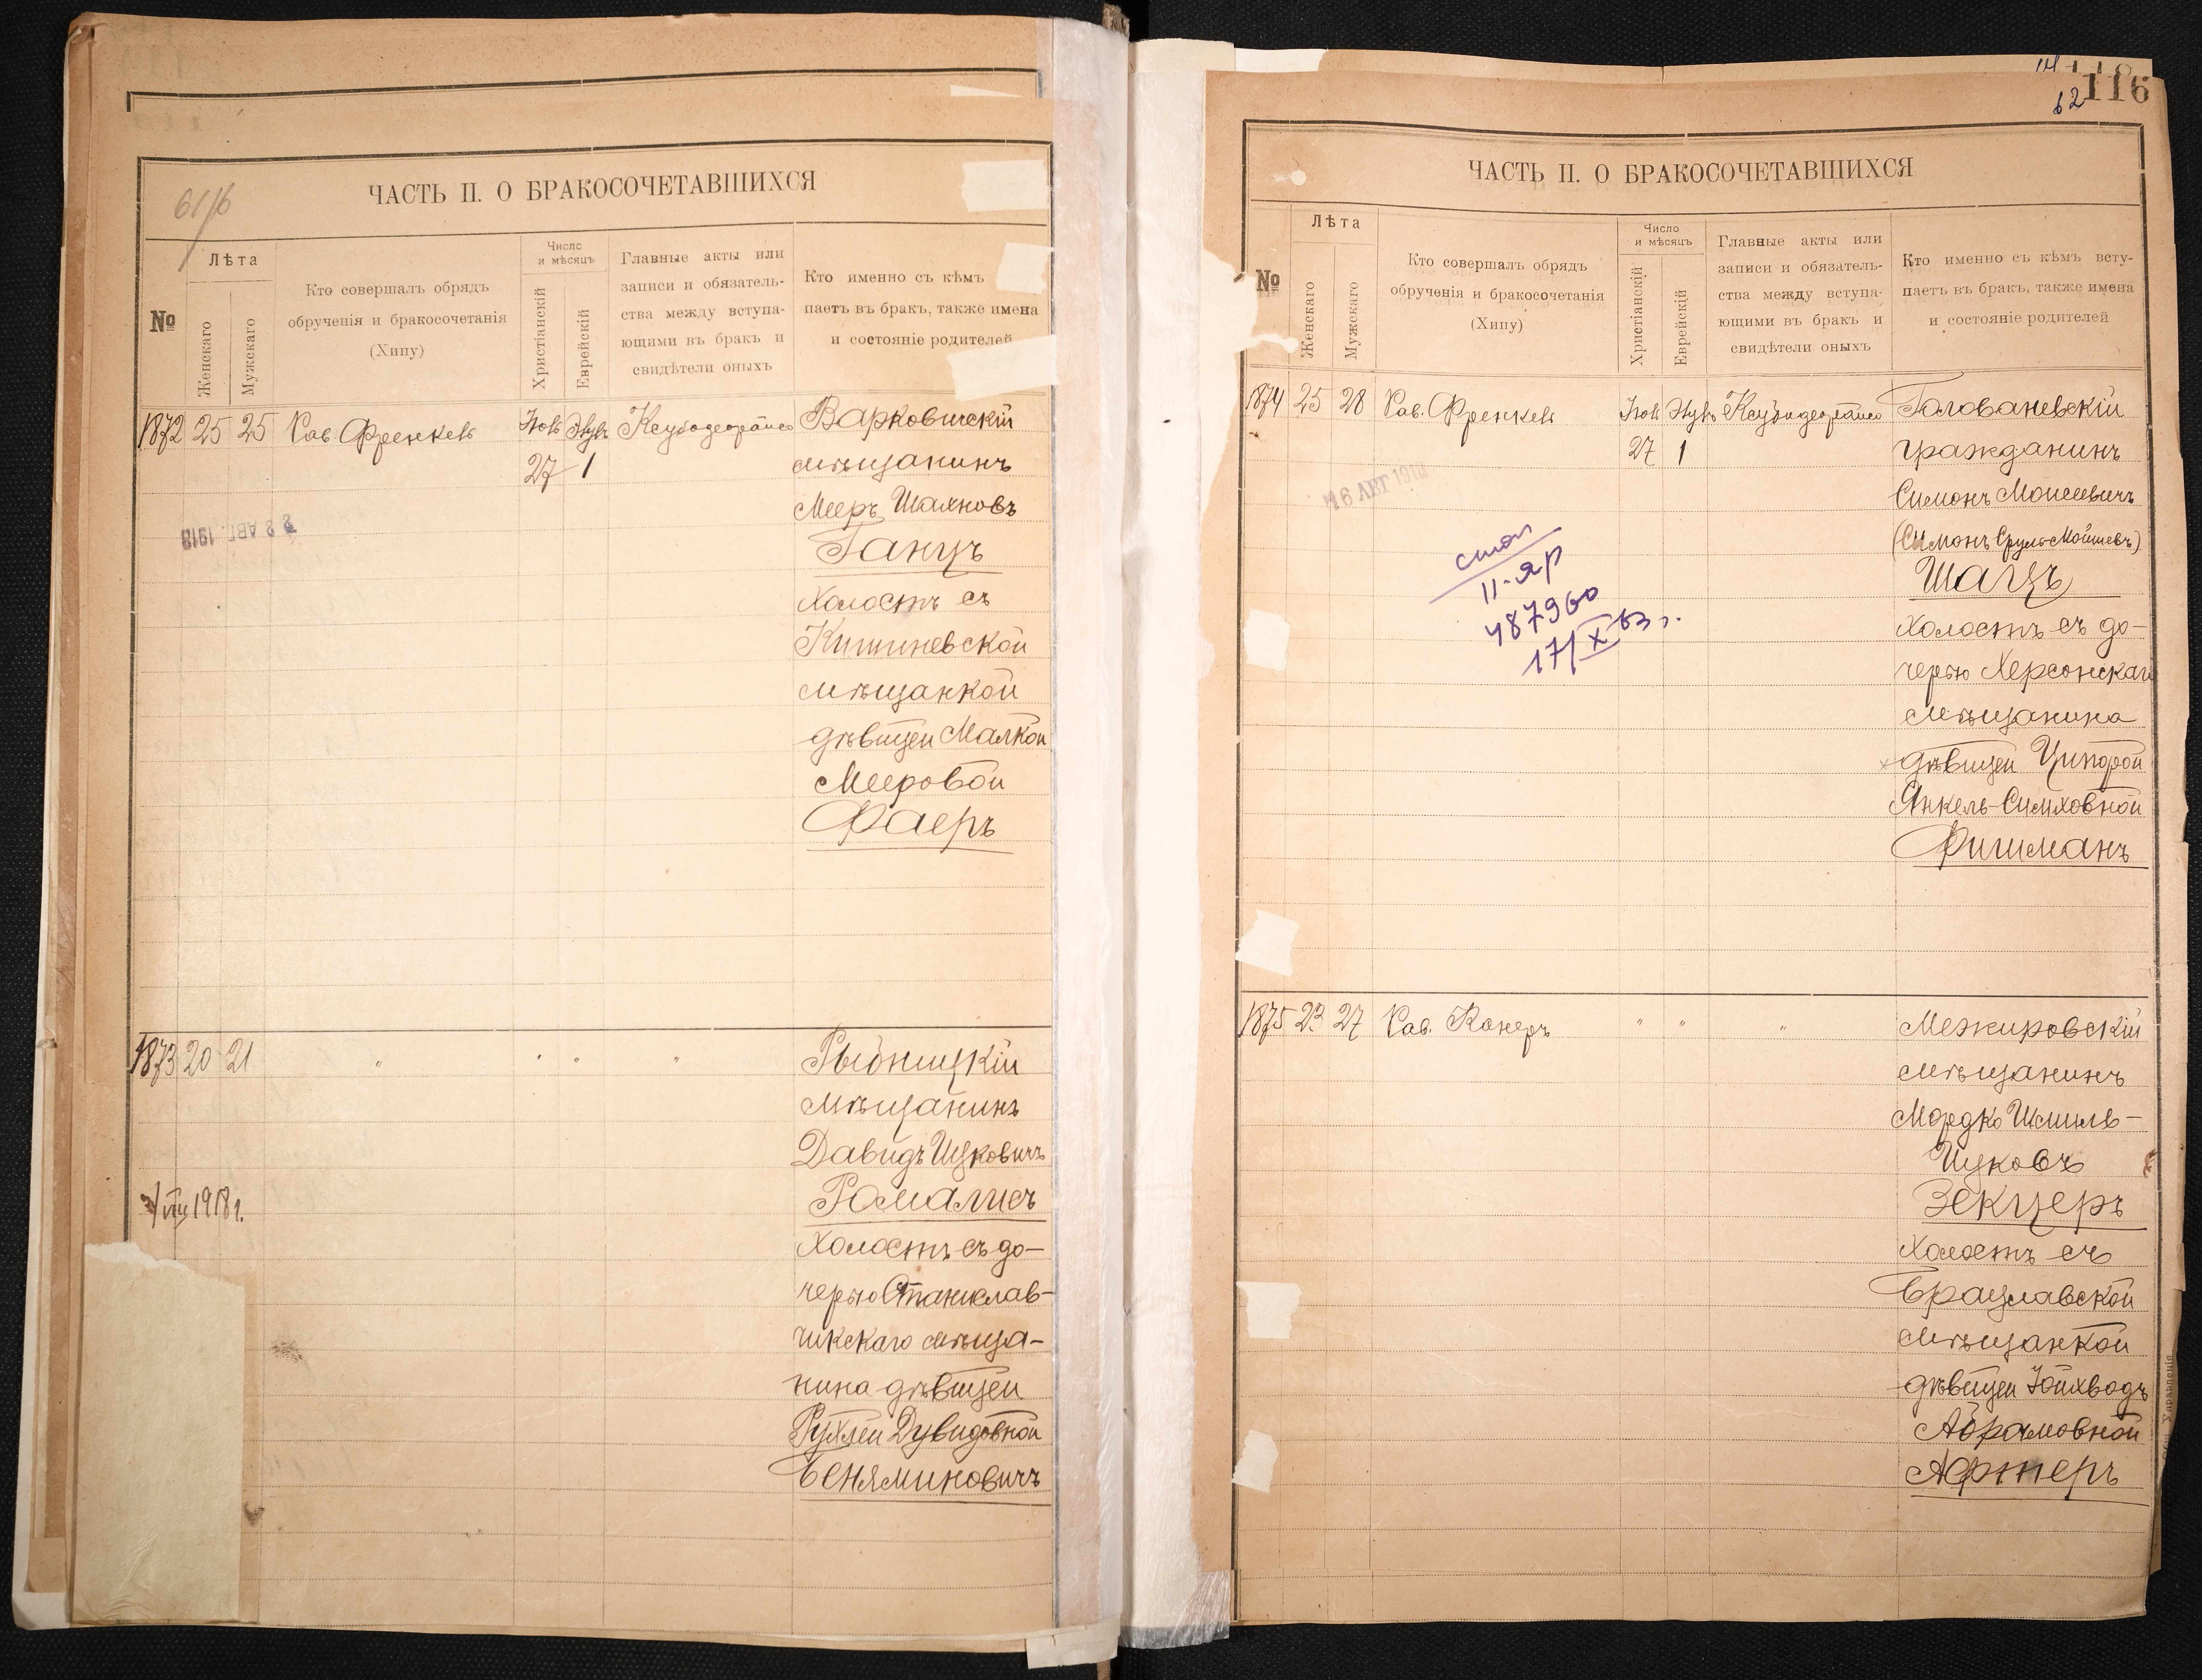 61/6
ЧАСТЬ II. О БРАКОСОЧЕТАВШИХСЯ
№
Лѣта
Женскаго
Мужскаго
Кто совершалъ обрядъ
обрученія и бракосочетанія
(Хипу)
Число
и мѣсяцъ
Христіанскій
Еврейскій
Главные акты или
записи и обязатель-
ства между вступа-
ющими въ бракъ и
свидѣтели оныхъ
Кто именно съ кѣмъ
паетъ въ бракъ, также имена
и состояніе родителей
1872 25 25 Рав. Френкель
27 1
Варковичскій
мѣщанинъ
Мееръ Шаяновъ
Ганцъ
холостъ съ
Кишиневской
мѣщанкой
дѣвицей Малкой
Мееровой
Фаеръ
22 АВГ. 1918
1873 20 21 " " " "
Рыбницкій
мѣщанинъ
Давидъ Ицковичъ
Ромалисъ
холостъ съ до-
черью Станислав-
чикскаго мѣща-
нина дѣвицей
Рухлей Дувидовной
Беняминовичъ
VIII 1918 г.
116
62
ЧАСТЬ II. О БРАКОСОЧЕТАВШИХСЯ
№
Лѣта
Женскаго
Мужскаго
Кто совершалъ обрядъ
обрученія и бракосочетанія
(Хипу)
Число
и мѣсяцъ
Христіанскій
Еврейскій
Главные акты или
записи и обязатель-
ства между вступа-
ющими въ бракъ и
свидѣтели оныхъ
Кто именно съ кѣмъ всту-
паетъ въ бракъ, также имена
и состояніе родителей
1874 25 28 Рав. Френкель
27 1
Голованевскій
гражданинъ
Симонъ Моисеевичъ
(Симонъ Сруль-Мойшевъ)
Шацъ
холостъ съ до-
черью Херсонскаго
мѣщанина
дѣвицей Ципорой
Янкель-Симховной
Фишманъ
16 АВГ 1918
II-ЯР
487960
17/X 63 г.
1875 23 27 Рав. Конеръ " " "
Межировскій
мѣщанинъ
Мордко Шмиль-
Ицковъ
Зекцеръ
холостъ съ
Брацлавской
мѣщанкой
дѣвицей Іойхводъ
Абрамовной
Афтеръ
Управленія